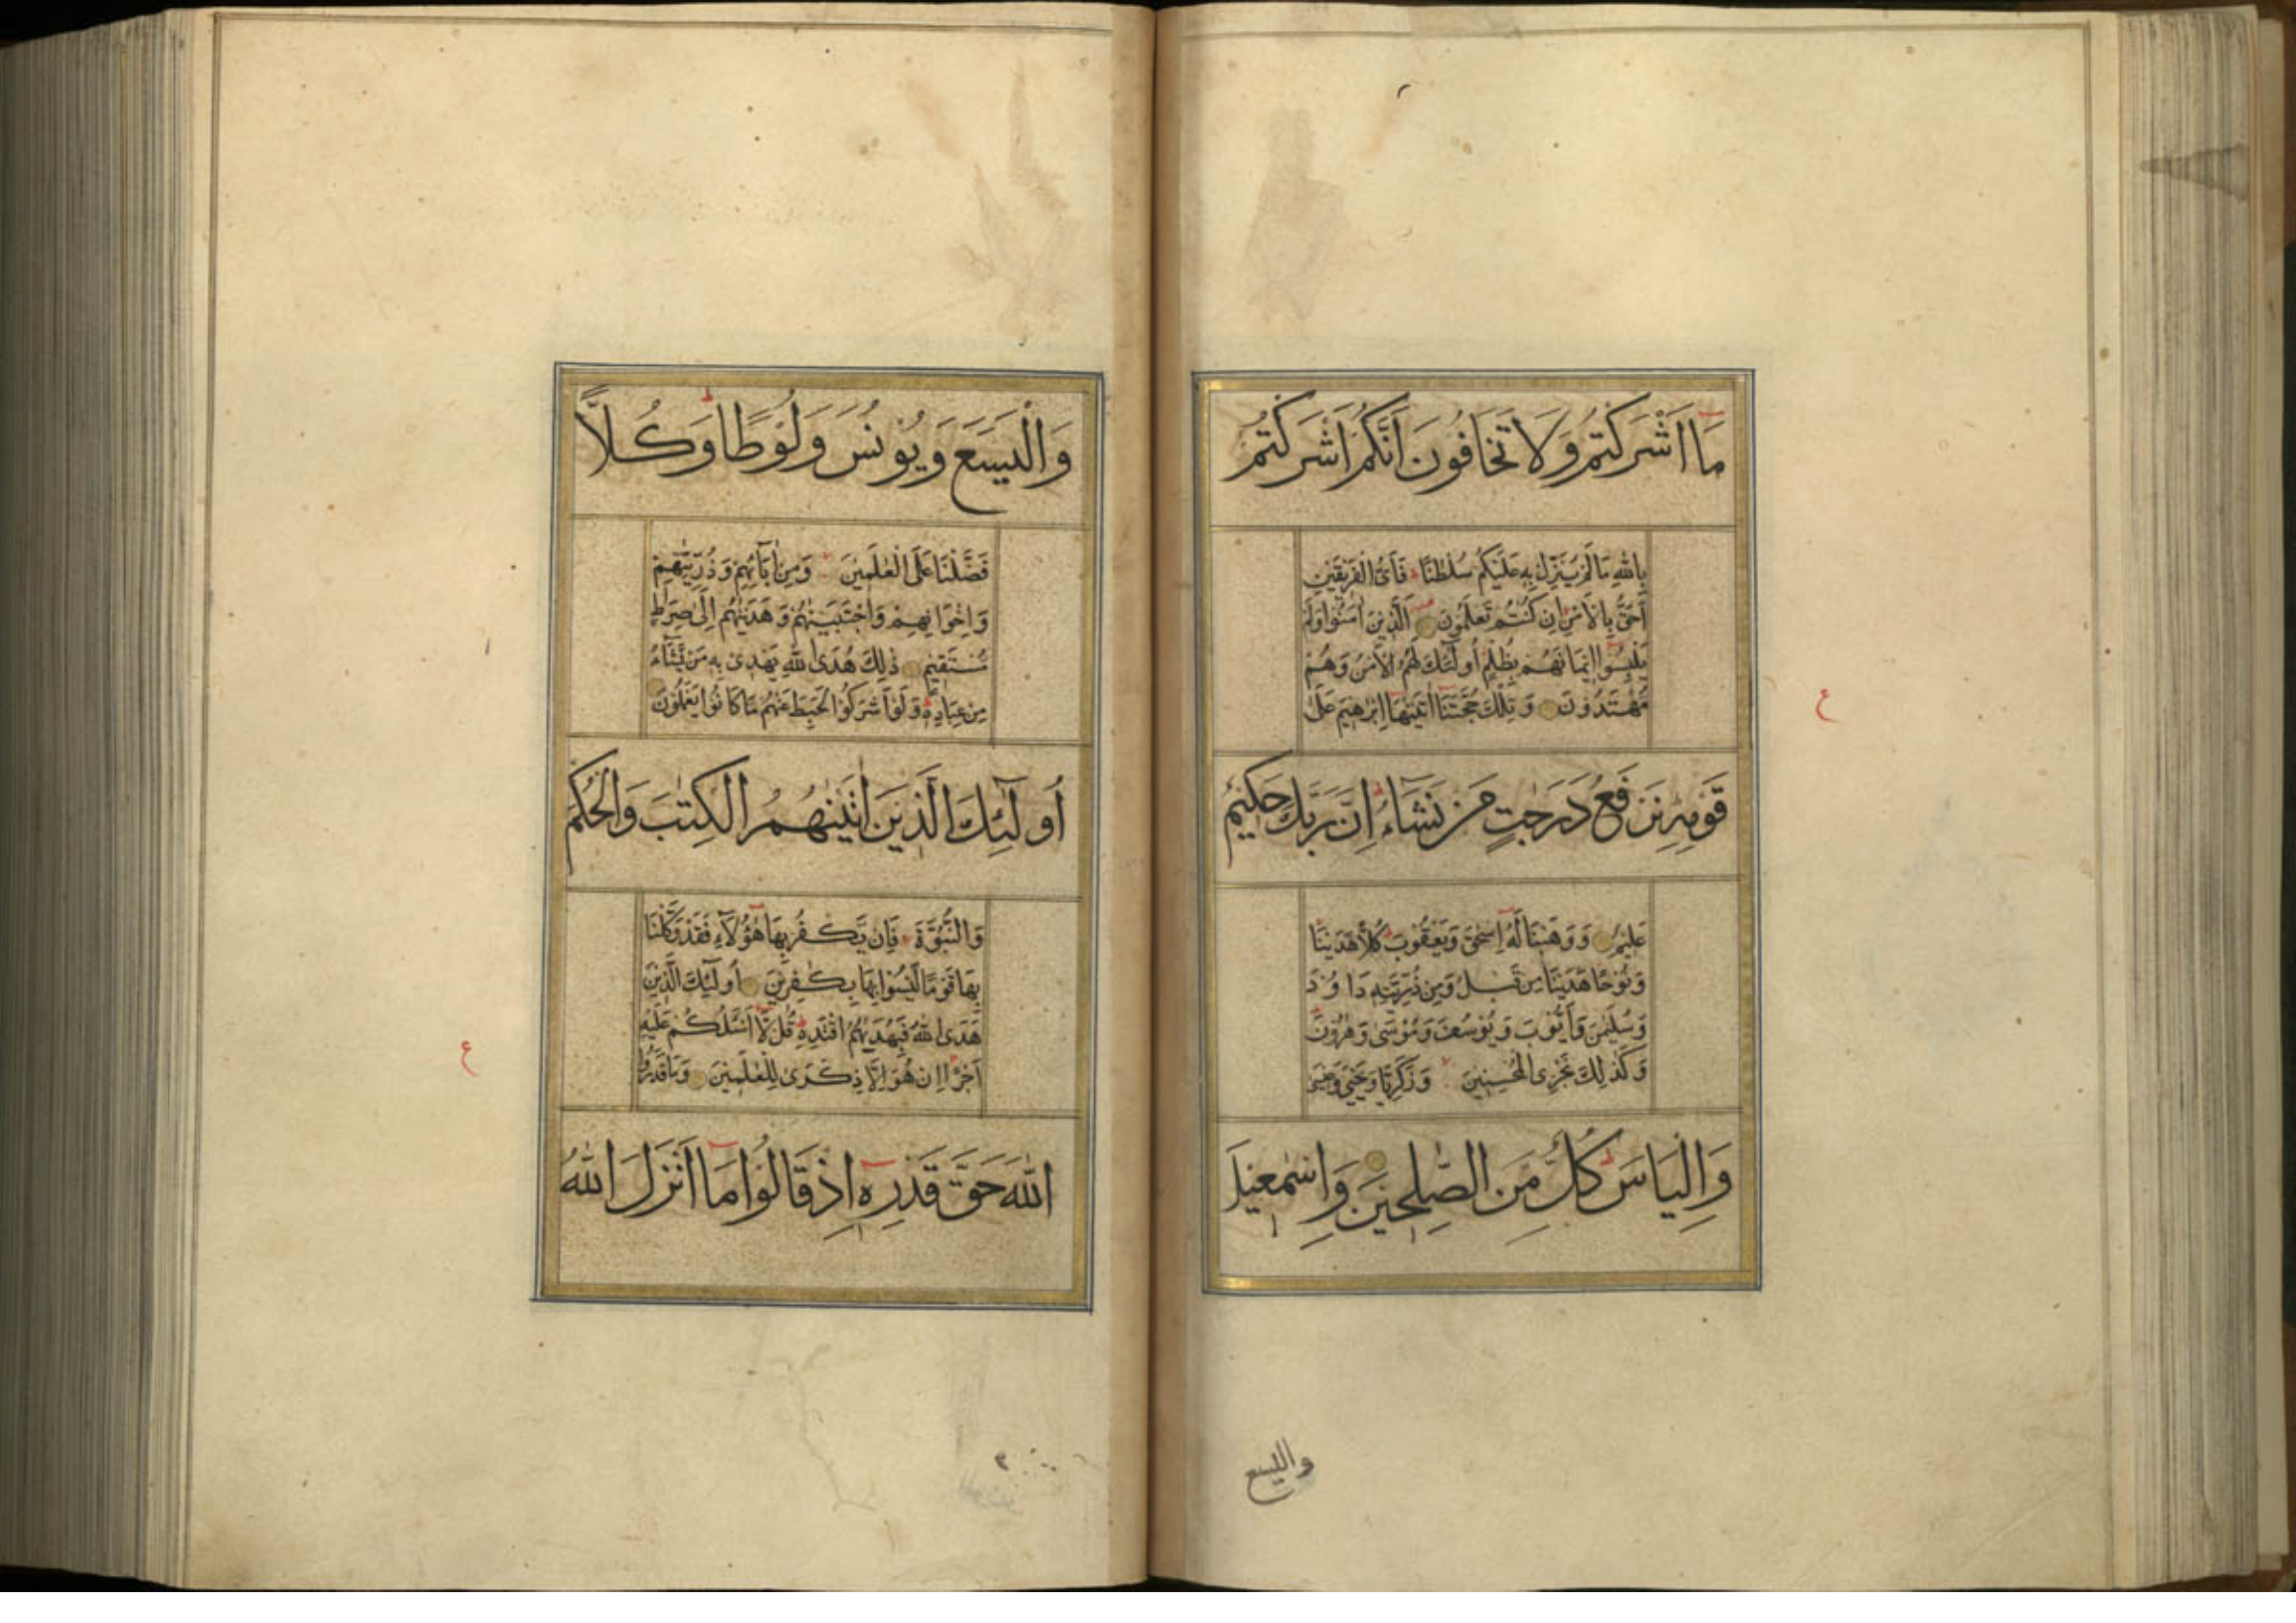 مَا اَشْرَكْتُمْ وَلَا تَخَافُونَ اَنَّكُمْ اَشْرَكْتُمْ
بِاللهِ مَا لَمْ يُنَزِّلْ بِهِ عَلَيْكُمْ سُلْطٰنًا ط فَاَىُّ الْفَرِيقَيْنِ
اَحَقُّ بِالْاَمْنِ اِنْ كُنْتُمْ تَعْلَمُونَ اَلَّذِينَ اٰمَنُوا وَلَمْ
يَلْبِسُوٓا اِيمَانَهُمْ بِظُلْمٍ اُولٰٓئِكَ لَهُمُ الْاَمْنُ وَهُمْ
مُهْتَدُونَ وَتِلْكَ حُجَّتُنَا اٰتَيْنٰهَا اِبْرٰهِيمَ عَلٰى
قَوْمِهِ نَرْفَعُ دَرَجٰتٍ مَنْ نَشَآءُ ط اِنَّ رَبَّكَ حَكِيمٌ
عَلِيمٌ وَوَهَبْنَا لَهُ اِسْحٰقَ وَيَعْقُوبَ ط كُلًّا هَدَيْنَا
وَنُوحًا هَدَيْنَا مِنْ قَبْلُ وَمِنْ ذُرِّيَّتِهِ دَاوُدَ
وَسُلَيْمٰنَ وَاَيُّوبَ وَيُوسُفَ وَمُوسٰى وَهٰرُونَ ط
وَكَذٰلِكَ نَجْزِى الْمُحْسِنِينَ وَزَكَرِيَّا وَيَحْيٰى وَعِيسٰى
وَاِلْيَاسَ ط كُلٌّ مِنَ الصّٰلِحِينَ وَاِسْمٰعِيلَ
ع
واليسع
وَالْيَسَعَ وَيُونُسَ وَلُوطًا ط وَكُلًّا
فَضَّلْنَا عَلَى الْعٰلَمِينَ وَمِنْ اٰبَآئِهِمْ وَذُرِّيّٰتِهِمْ
وَاِخْوَانِهِمْ وَاجْتَبَيْنٰهُمْ وَهَدَيْنٰهُمْ اِلٰى صِرَاطٍ
مُسْتَقِيمٍ ذٰلِكَ هُدَى اللهِ يَهْدِى بِهِ مَنْ يَشَآءُ
مِنْ عِبَادِهِ ط وَلَوْ اَشْرَكُوا لَحَبِطَ عَنْهُمْ مَا كَانُوا يَعْمَلُونَ
اُولٰٓئِكَ الَّذِينَ اٰتَيْنٰهُمُ الْكِتٰبَ وَالْحُكْمَ
وَالنُّبُوَّةَ فَاِنْ يَّكْفُرْ بِهَا هٰٓؤُلَآءِ فَقَدْ وَكَّلْنَا
بِهَا قَوْمًا لَّيْسُوا بِهَا بِكٰفِرِينَ اُولٰٓئِكَ الَّذِينَ
هَدَى اللهُ فَبِهُدٰيهُمُ اقْتَدِهْ ط قُلْ لَّا اَسْـَٔلُكُمْ عَلَيْهِ
اَجْرًا اِنْ هُوَ اِلَّا ذِكْرٰى لِلْعٰلَمِينَ وَمَا قَدَرُوا
اللهَ حَقَّ قَدْرِهِ اِذْ قَالُوا مَا اَنْزَلَ اللهُ
ع